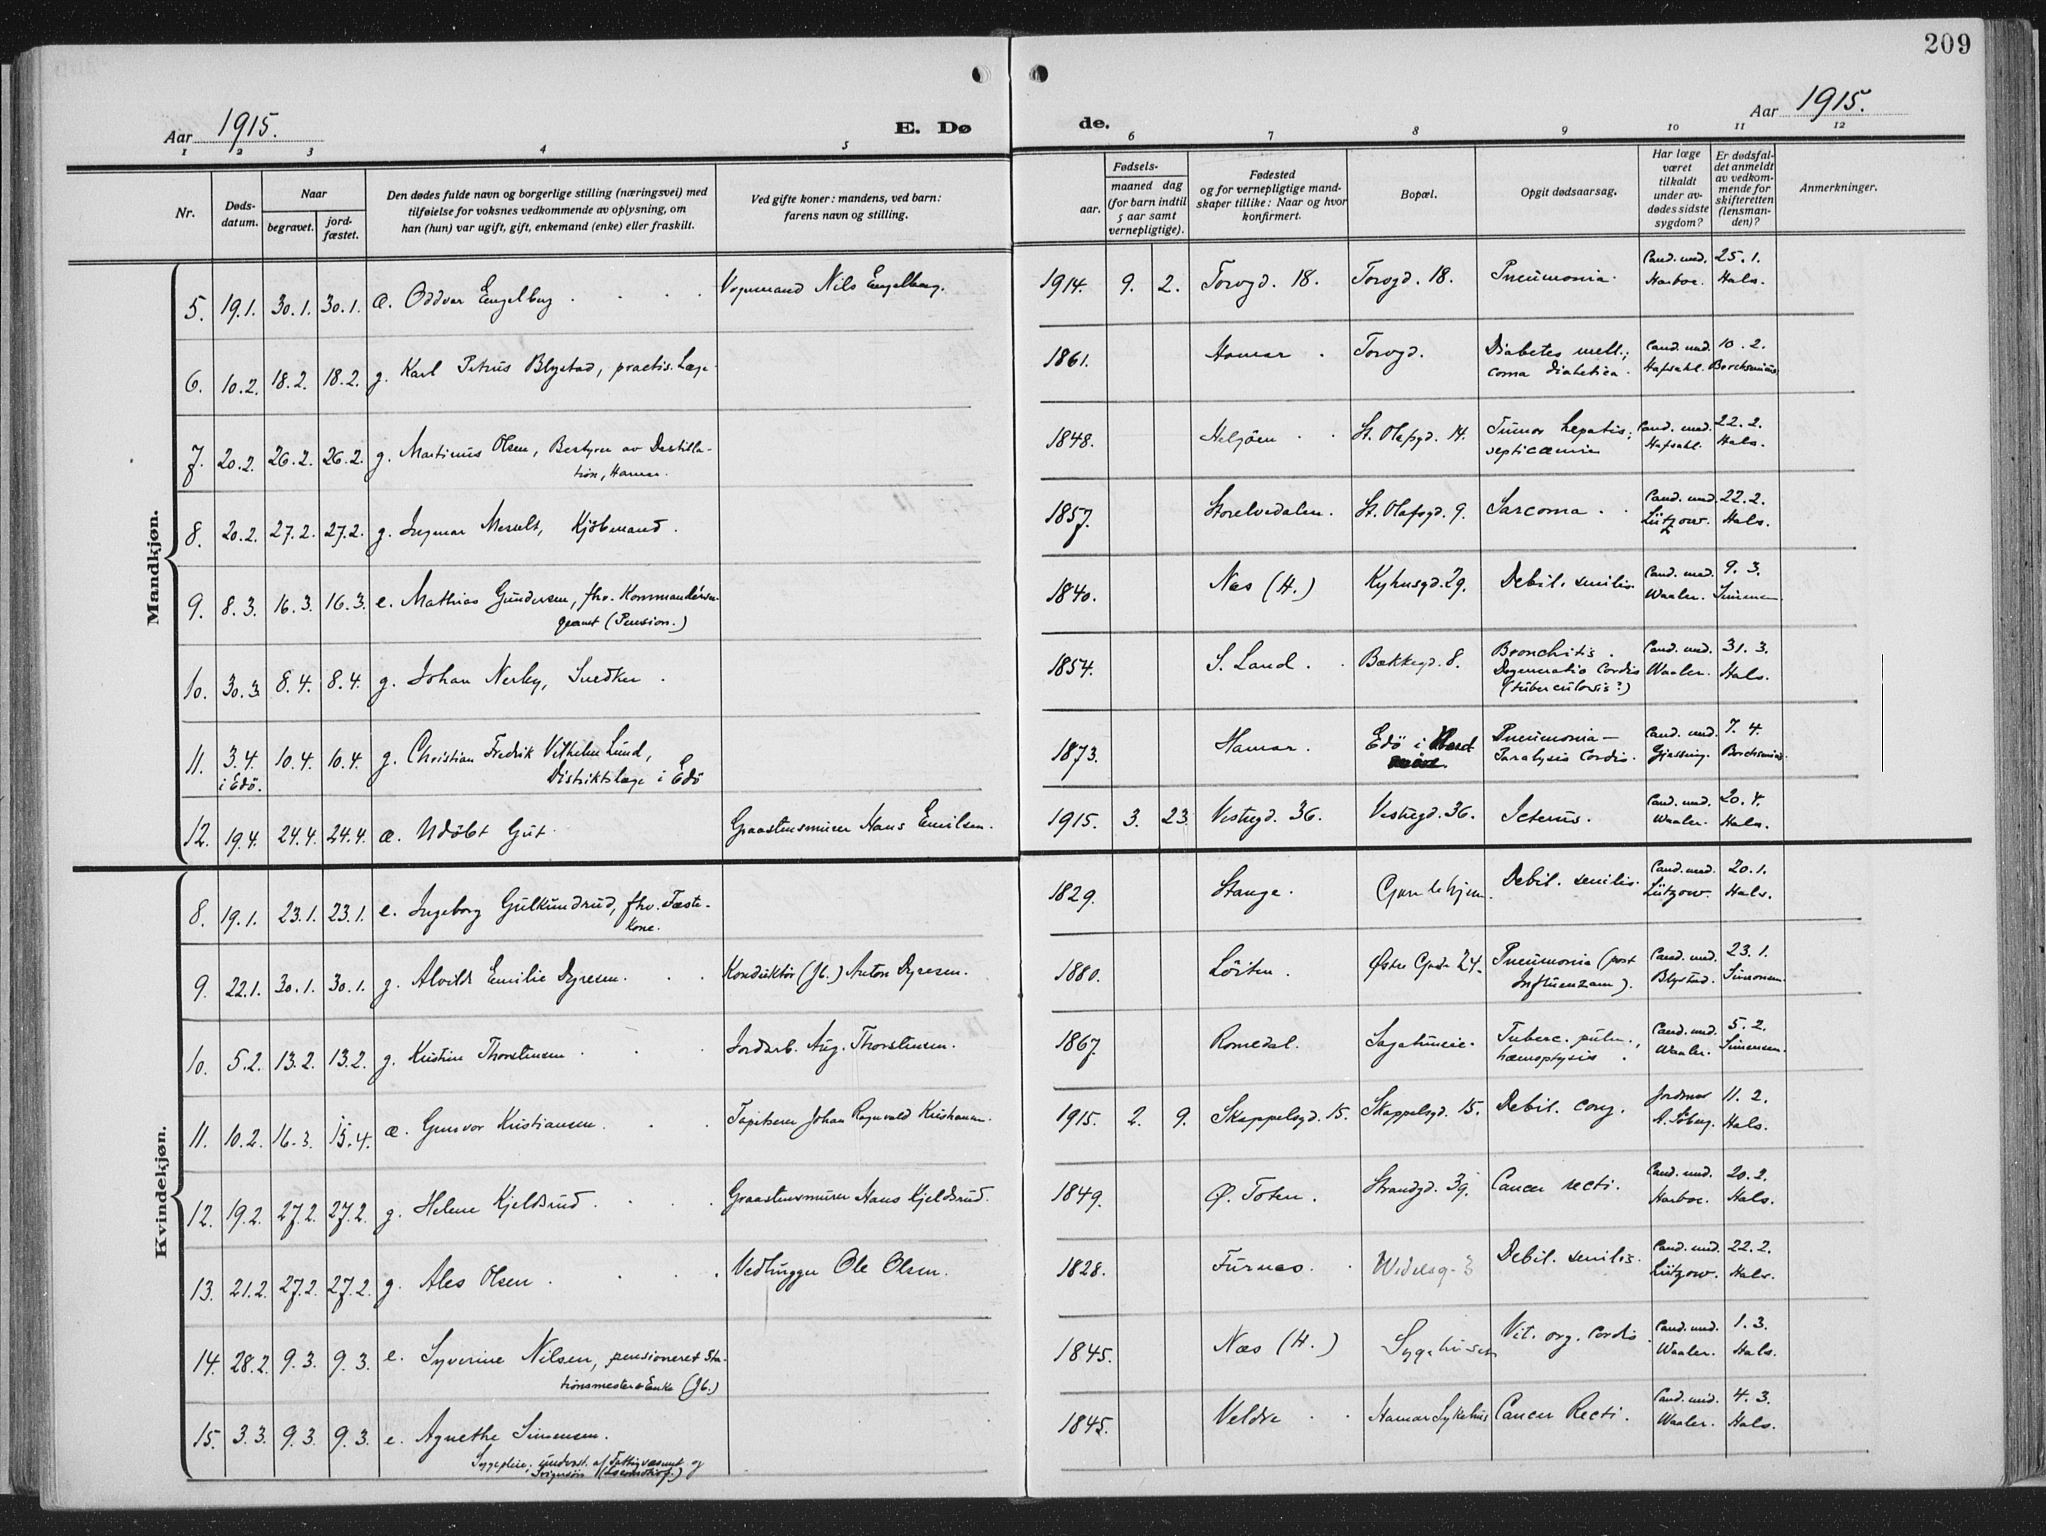 209
Aar 1915.
E. Dø
de.
Aar 1915.
1 2 3 4 5 6 7 8 9 10 11 12
Nr.
Døds-
datum.
Naar
begravet.
jord-
fæstet.
Den dødes fulde navn og borgerlige stilling (næringsvei) med
tilføielse for voksnes vedkommende av oplysning, om
han (hun) var ugift, gift, enkemand (enke) eller fraskilt.
Ved gifte koner: mandens, ved barn:
farens navn og stilling.
Fødsels-
aar.
maaned dag
(for barn indtil
5 aar samt
vernepligtige).
Fødested
og for vernepligtige mand-
skaper tillike: Naar og hvor
konfirmert.
Bopæl.
Opgit dødsaarsag.
Har læge
været
tilkaldt
under av-
dødes sidste
sygdom?
Er dødsfal-
det anmeldt
av vedkom-
mende for
skifteretten
(lensman-
den)?
Anmerkninger.
Mandkjøn.
5. 19.1. 30.1. 30.1. æ. Oddvar Engelberg Vognmand Nils Engelberg. 1914. 9. 2. Torvgd. 18. Torvgd. 18. Pneumonia. Cand. med. Harboe. 25.1. Hals.
6. 10.2. 18.2. 18.2. g. Karl Petrus Blystad, practis. Læge. 1861. Hamar. Torvgd. Diabetes mell.; Cand. med. 10.2.
coma diabetica. Hafsahl. Borchsenius
7. 20.2. 26.2. 26.2. g. Martinus Olsen, Bestyrer av Destilla- 1848. Helgöen St. Olafsgd. 14. Tumor hepatis; Cand. med. 22.2.
tion, Hamar. septicæmia Hafsahl. Hals.
8. 20.2. 27.2. 27.2. g. Ingmar Meselt, Kjöbmand. 1857. Storelvedalen. St. Olafsgd. 9. Sarcoma Cand. med. Lützow. 22.2. Hals.
9. 8.3. 16.3. 16.3. e. Mathias Gundersen, fhv. Kommandérser- 1840. Næs (H.) Kyhusgd. 29. Debil. senilis. Cand. med. 9.3.
geant (Pension.) Waaler. Simensen.
10. 30.3. 8.4. 8.4. g. Johan Nerby, Snedker. 1854. S. Land. Bækkegd. 8. Bronchitis. Cand. med. 31.3.
Degeneratio cordis Waaler. Hals.
(tuberculosis?)
11. 3.4. 10.4. 10.4. g. Christian Fredrik Vilhelm Lund, 1873. Hamar. Edö i Pneumonia — Cand. med. 7.4.
i Edö. Distriktslæge i Edö Paralysis cordis. Borchsenius.
12. 19.4. 24.4. 24.4. æ. Udöbt Gut. Graastensmurer Hans Emilsen. 1915. 3. 23. Vestregd. 36. Vestregd. 36. Icterus. Cand. med. Waaler. 20.4. Hals.
Kvindekjøn.
8. 19.1. 23.1. 23.1. e. Ingeborg Gulkundrud, fhv. Fæste- 1829. Stange. Gamlehjem. Debil. senilis. Cand. med. 20.1.
kone. Lützow. Hals.
9. 22.1. 30.1. 30.1. g. Alvilde Emilie Dyresen. Konduktör (Jb.) Anton Dyresen. 1880. Löiten. Østre Gade 24. Pneumonia (post Cand. med. 23.1.
Influenzam). Blystad. Simensen.
10. 5.2. 13.2. 13.2. g. Kristine Thorstensen Jordarb. Aug. Thorstensen. 1867. Romedal. Sagatuneie. Tuberc. pulm., Cand. med. 5.2.
hæmoptysis. Waaler. Simensen.
11. 10.2. 16.3. 15.4. æ. Gunvor Kristiansen. Tapetserer Johan Ragnvald Kristiansen. 1915. 2. 9. Skappelsgd. 15. Skappelsgd. 15. Debil. cong. Jordmor A. Söberg. 11.2. Hals.
12. 19.2. 27.2. 27.2. g. Helene Kjeldsrud. Graastensmurer Hans Kjeldsrud. 1849. Ø. Toten. Strandgd. 39. Cancer recti. Cand. med. Harboe. 20.2. Hals.
13. 21.2. 27.2. 27.2. g. Ales Olsen. Vedhugger Ole Olsen. 1828. Furnes. Wedelsg. 3 Debil. senilis. Cand. med. Lützow. 22.2. Hals.
14. 28.2. 9.3. 9.3. e. Syverine Nilsen, pensioneret Sta- 1845. Næs (H.) Sygehuset Vit. org. cordis. Cand. med. 1.3.
tionsmesters Enke (Jb.) Waaler. Hals.
15. 3.3. 9.3. 9.3. e. Agnethe Simensen. 1845. Veldre Hamar Sykehus Cancer Recti. Cand. med. Waaler. 4.3. Hals.
Sygepleie; underst. af Fattigvæsenet og